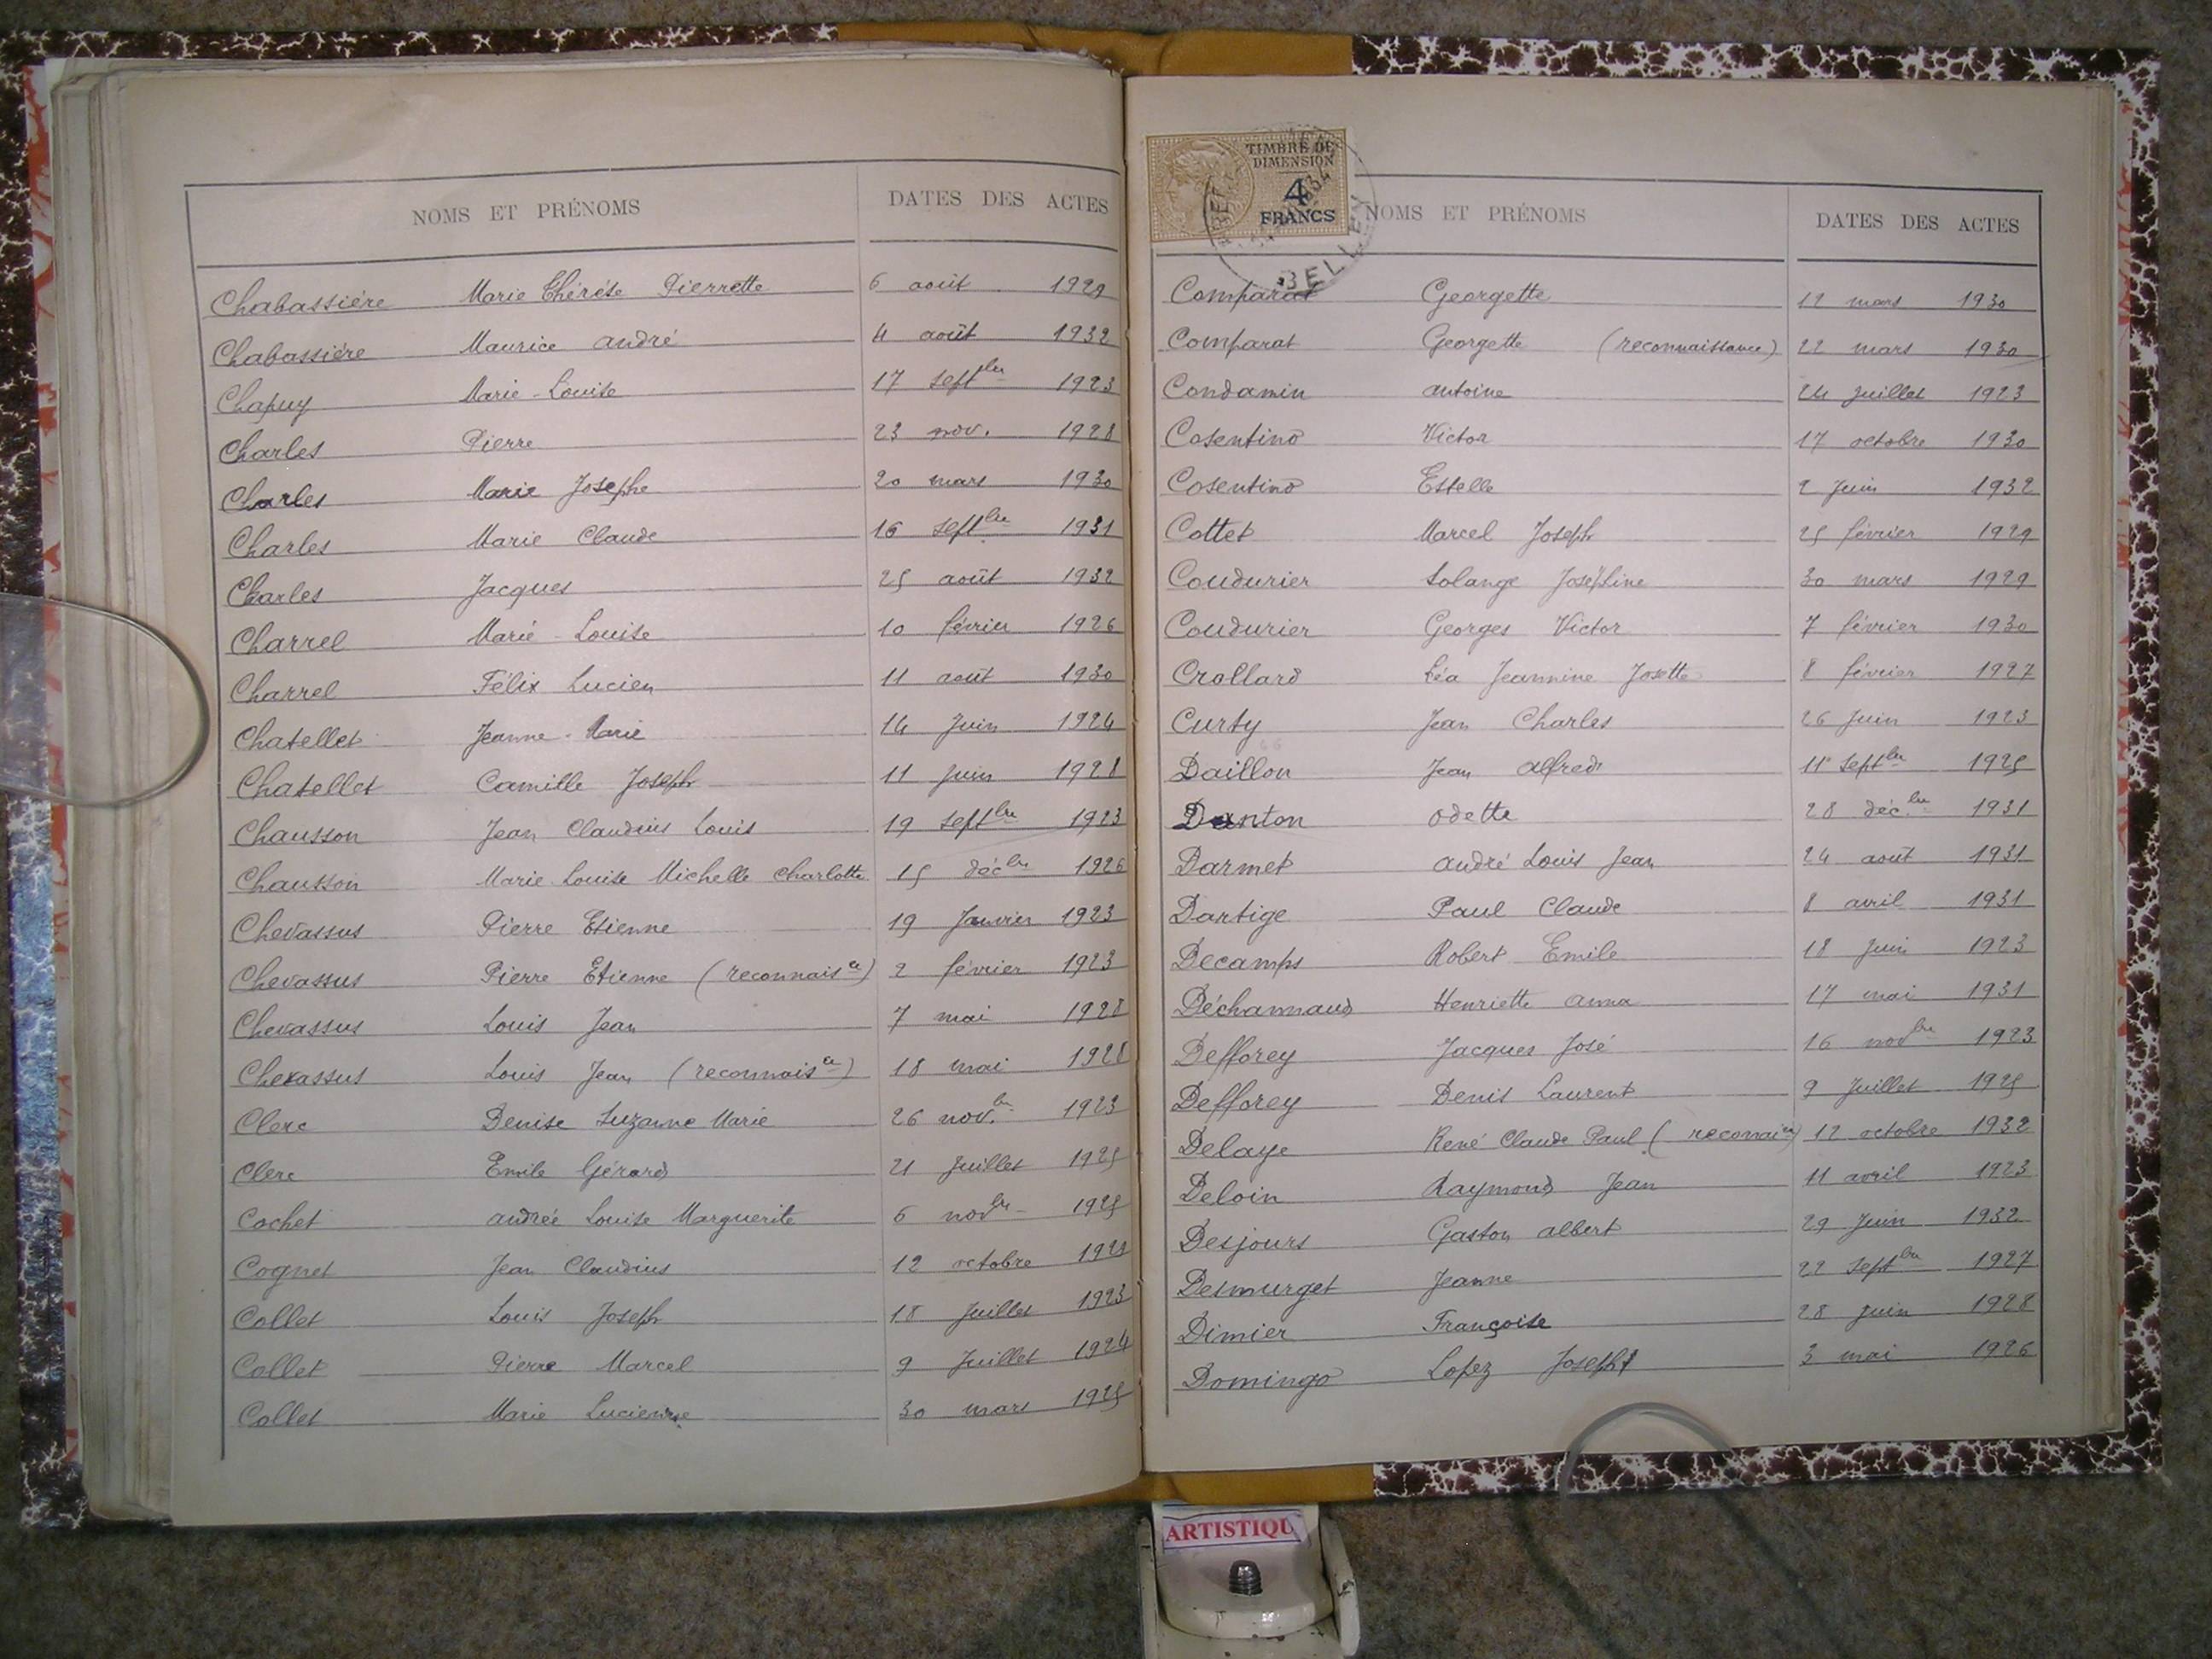 NOMS ET PRÉNOMS DATES DES ACTES
Chabassière Marie Thérèse Pierrette 6 août 1929
Chabassière Maurice andré 4 août 1932
Chapuy Marie-Louise 17 septbre 1923
Charles Pierre 23 nov. 1928
Charles Marie Josephe 20 mars 1930
Charles Marie Claude 16 septbre 1931
Charles Jacques 25 août 1932
Charrel Marie-Louise 10 février 1926
Charrel Félix Lucien 11 août 1930
Chatellet Jeanne-Marie 14 Juin 1924
Chatellet Camille Joseph 11 Juin 1928
Chausson Jean Claudius Louis 19 septbre 1923
Chausson Marie Louise Michelle Charlotte 15 décbre 1926
Chevassus Pierre Etienne 19 Janvier 1923
Chevassus Pierre Etienne (reconnaisce) 2 février 1923
Chevassus Louis Jean 7 mai 1928
Chevassus Louis Jean (reconnaisce) 18 mai 1928
Clerc Denise Suzanne Marie 26 nov.bre 1923
Clerc Emile Gérard 21 Juillet 1925
Cochet andrée Louise Marguerite 6 novbre 1925
Cognet Jean Claudius 12 octobre
Collet Louis Joseph 18 Juillet 1923
Collet Pierre Marcel 9 Juillet 1924
Collet Marie Lucienne 30 mars 1925
TIMBRE DE
DIMENSION
4
FRANCS
BELLEY
NOMS ET PRÉNOMS DATES DES ACTES
Comparat Georgette 12 mars 1930
Comparat Georgette (reconnaissance) 22 mars 1930
Condamin antoine 24 Juillet 1923
Cosentino Victor 17 octobre 1930
Cosentino Estelle 2 Juin 1932
Cottet Marcel Joseph 25 février 1929
Coudurier Solange Joséphine 30 mars 1929
Coudurier Georges Victor 7 février 1930
Crollard Léa Jeannine Josette 8 février 1927
Curty Jean Charles 26 Juin 1923
Daillon Jean alfred 11 septbre 1925
Danton odette 28 déc.bre 1931
Darmet andré Louis Jean 24 août 1931
Dartige Paul Claude 8 avril 1931
Decamps Robert Emile 18 Juin 1923
Déchannaud Henriette anna 17 mai 1931
Defforey Jacques José 16 novbre 1923
Defforey Denis Laurent 9 Juillet 1925
Delaye René Claude Paul (reconnaice) 12 octobre 1932
Deloin Raymond Jean 11 avril 1923
Desjours Gaston albert 29 Juin 1932
Desmurget Jeanne 22 septbre 1927
Dimier Françoise 28 Juin 1928
Domingo Lopez Joseph 3 mai 1926
ARTISTIQU